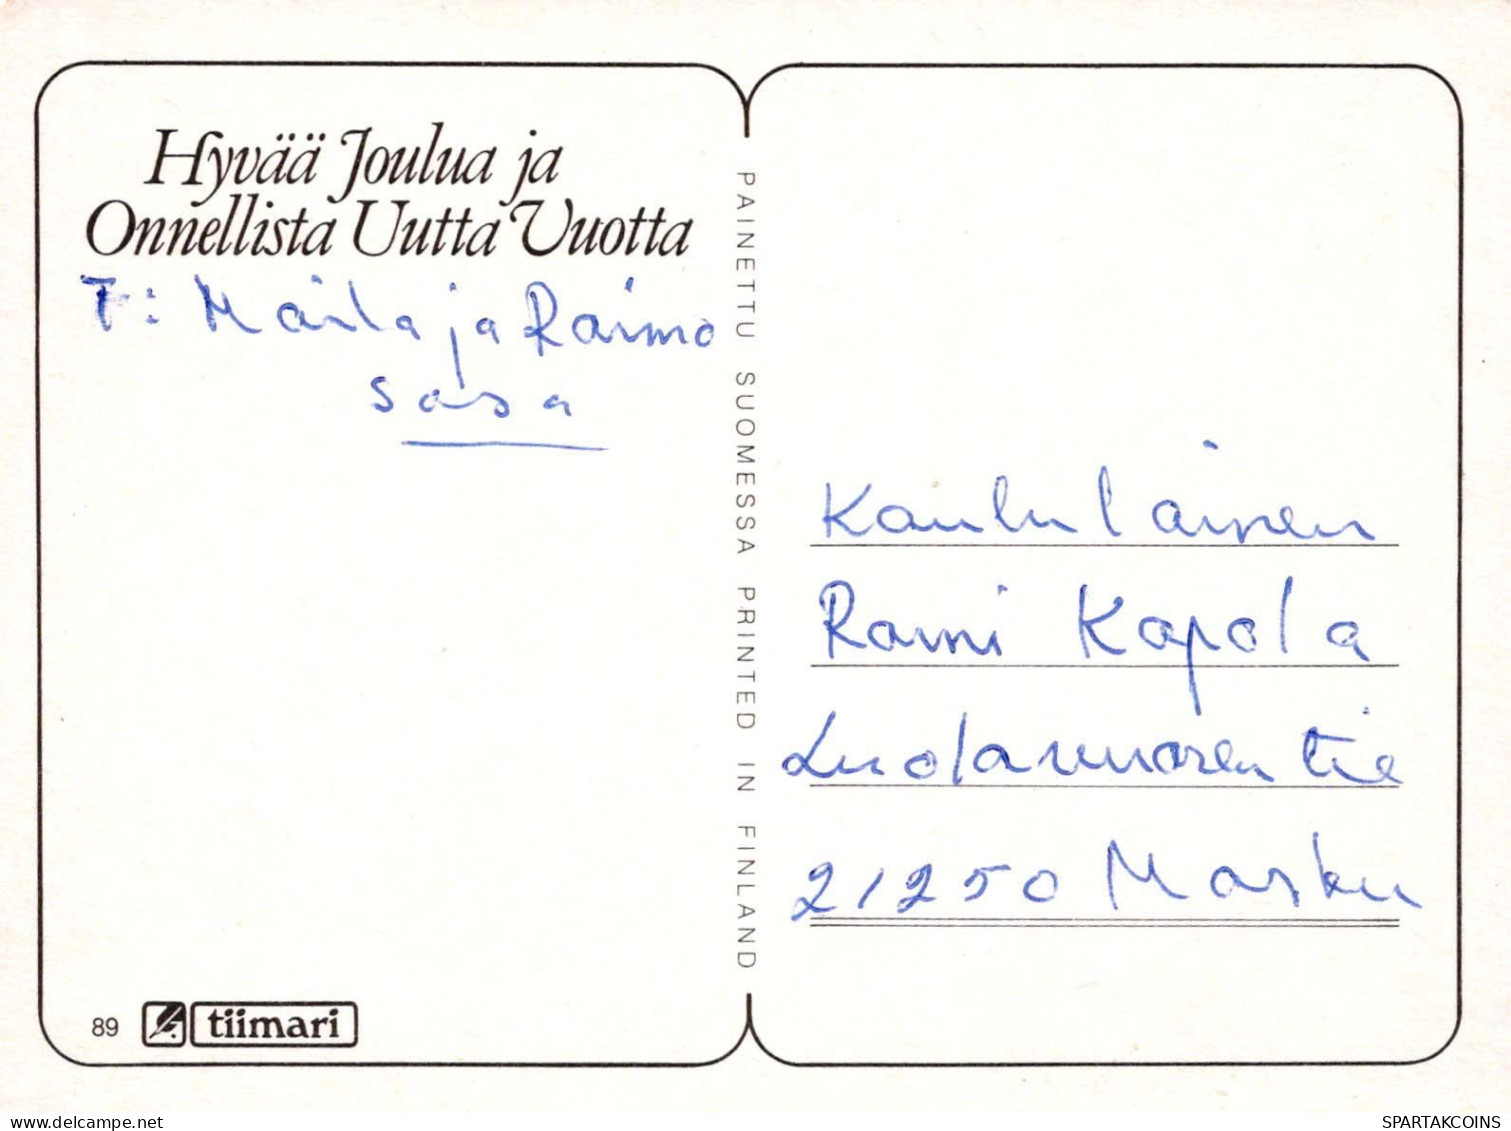 Hyvää Joulua ja
Onnellista Uutta Vuotta
T: Maila ja Raimo
Sasa
PAINETTU SUOMESSA PRINTED IN FINLAND
Kaululainen
Raini Kapola
Luolavuoren tie
21250 Masku
89 tiimari
delcampe.net
SPARTAKCOINS